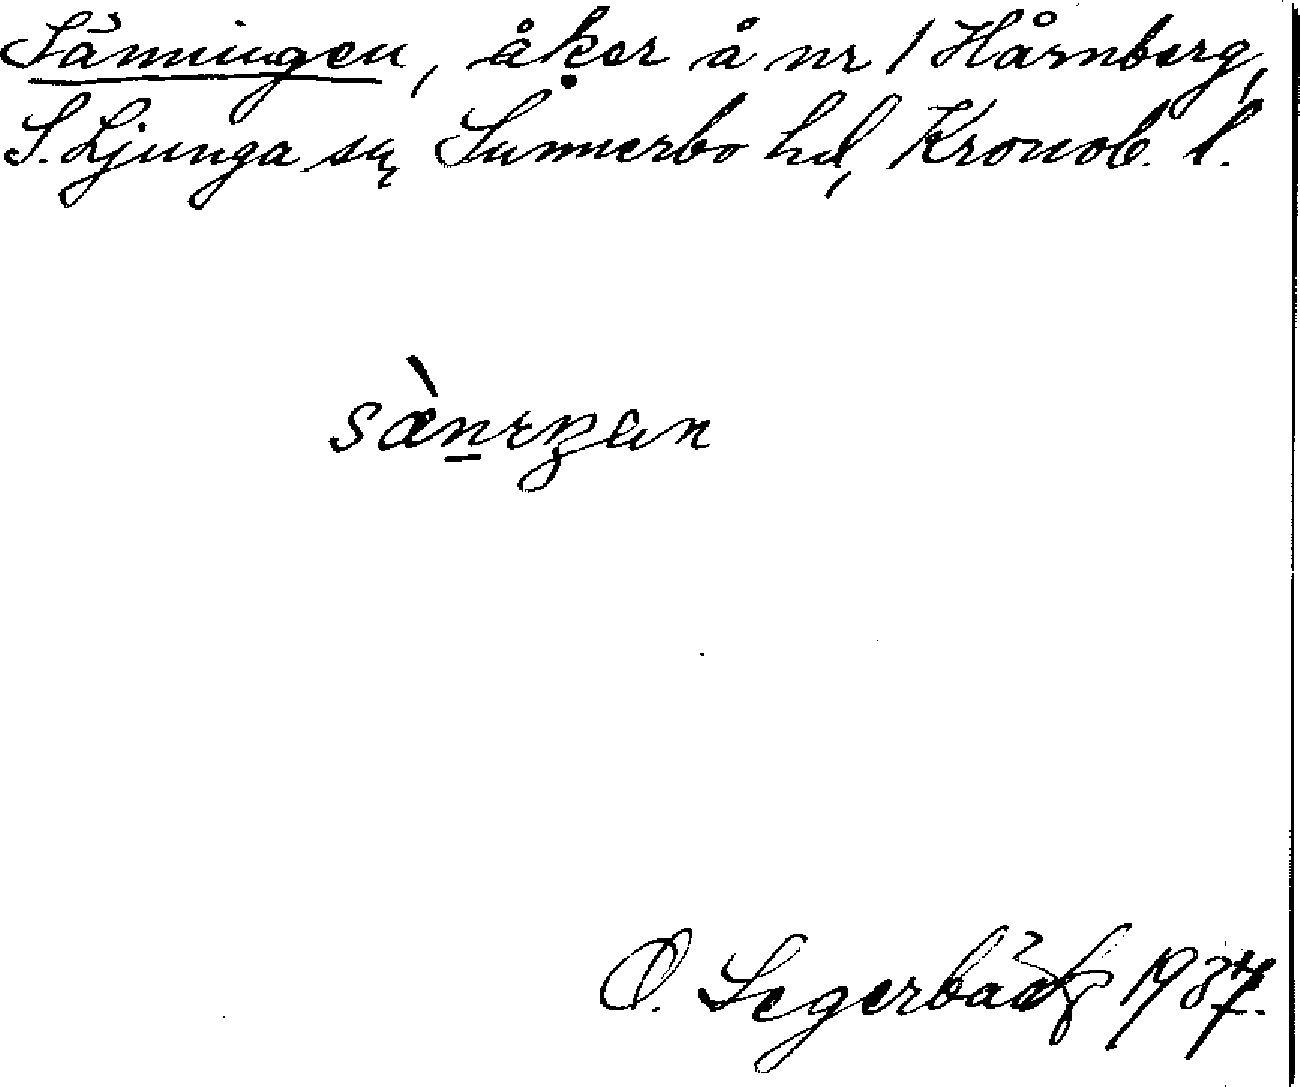 Sänningen, åker å nr 1 Hårnberg,
S. Ljunga sn, Sunnerbo hd, Kronob. l.
O. Segerbäck 1937.